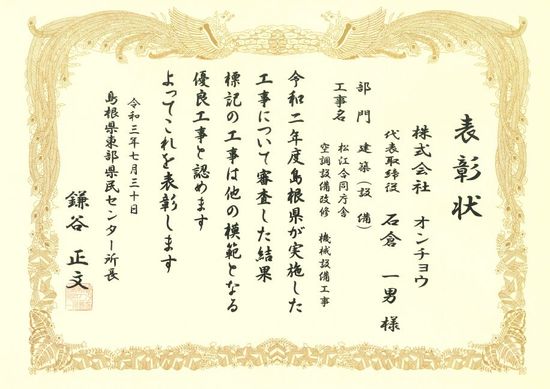 表彰状
株式会社 オンチョウ
代表取締役 石倉 一男 様
部門 建築(設備)
工事名 松江合同庁舎
空調設備改修 機械設備工事
令和二年度島根県が実施した
工事について審査した結果
標記の工事は他の模範となる
優良工事と認めます
よってこれを表彰します
令和三年七月三十日
島根県東部県民センター所長
鎌谷 正文